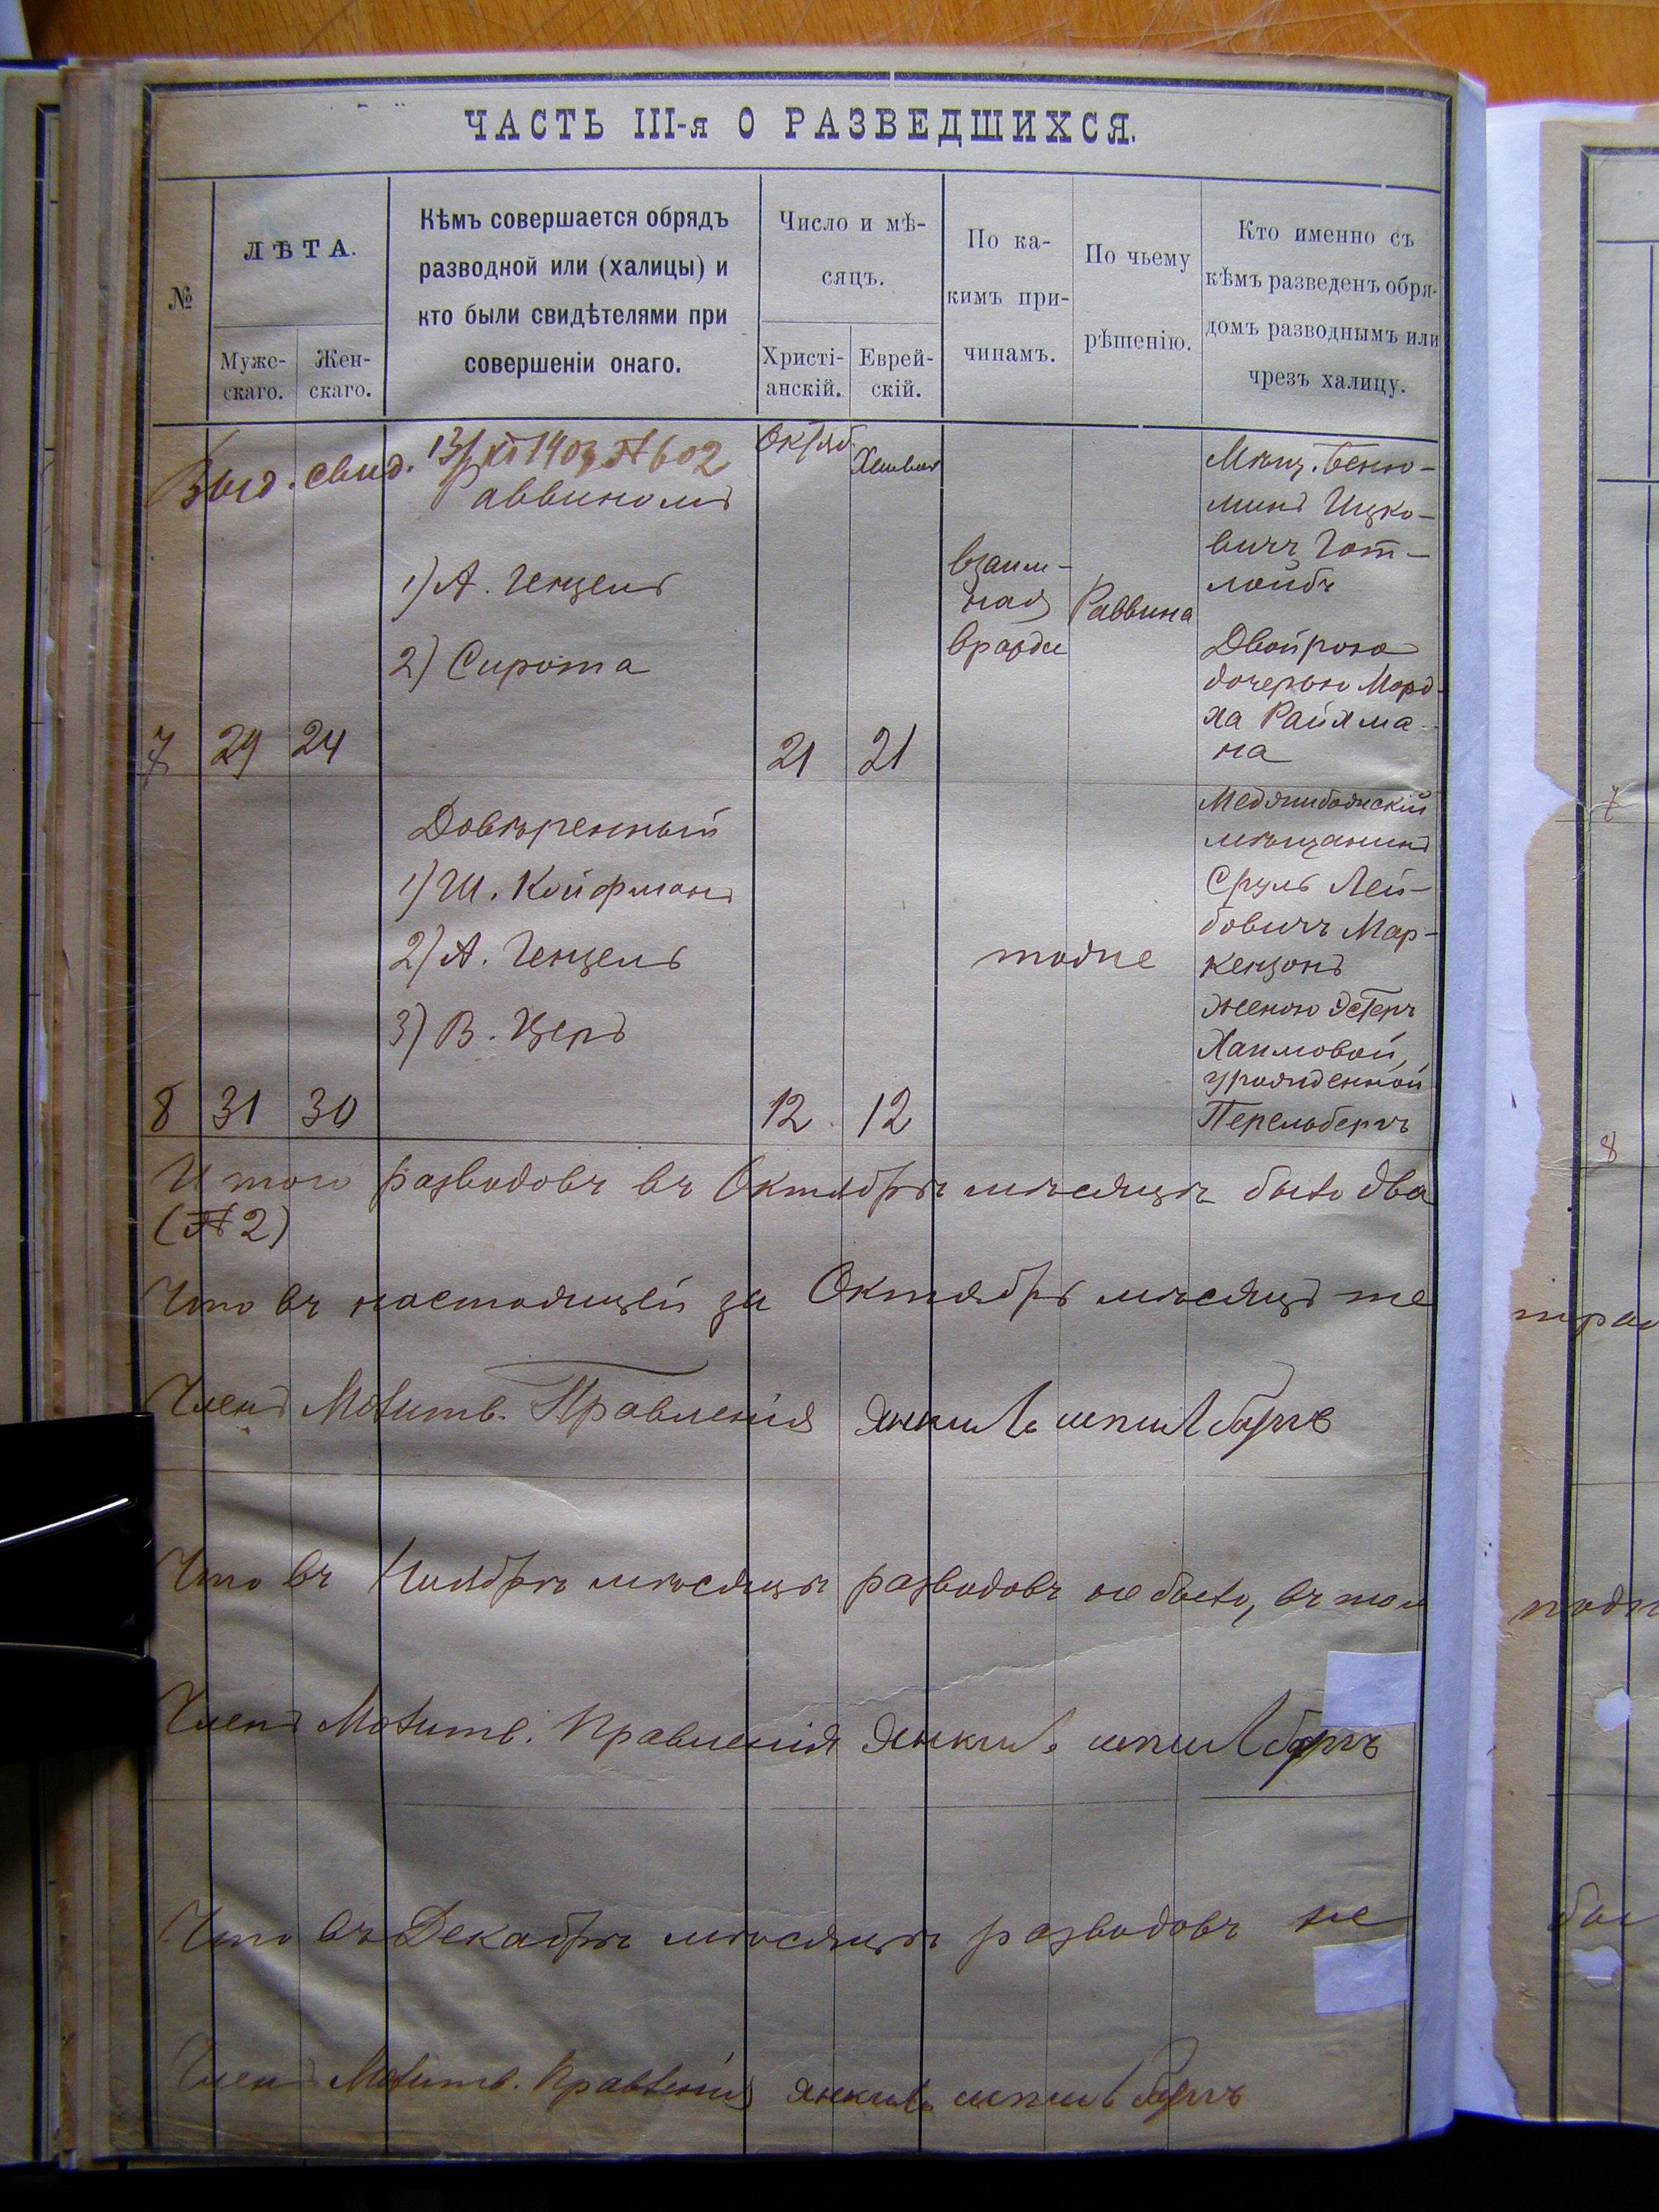 ЧАСТЬ III-я О РАЗВЕДШИХСЯ.
№
ЛѢТА.
Муже-
скаго.
Жен-
скаго.
Кѣмъ совершается обрядъ
разводной или (халицы) и
кто были свидѣтелями при
совершеніи онаго.
Число и мѣ-
сяцъ.
Христі-
анскій.
Еврей-
скій.
По ка-
кимъ при-
чинамъ.
По чьему
рѣшенію.
Кто именно съ
кѣмъ разведенъ обря-
домъ разводнымъ или
чрезъ халицу.
Выд. свид. № 602
Октяб.
Раввиномъ
1) А. Генцель
2) Сирота
7 29 24
21 21
взаим-
ная
вражда
Раввина
Мѣщ. Беню-
минъ Ицко-
вичъ Гот-
лойбъ
Двойрою
дочерью Морд-
ха Райхма-
на
Довѣренный
1) Ш. Койфманъ
2) А. Генцель
3) В. Церъ
8 31 30
12 12
тоже
Меджибожскій
мѣщанинъ
Сруль Лей-
бовичъ Мар-
кензонъ
женою Эстеръ
Хаимовой,
урожденной
Перельбергъ
Итого разводовъ въ Октябрѣ мѣсяцѣ было два
(№ 2)
Что въ настоящей за Октябрь мѣсяцъ не
Членъ Молитв. Правленія Янкиль шпилбергъ
Что въ Ноябрѣ мѣсяцѣ разводовъ не было, въ том
Членъ Молитв. Правленія Янкиль шпилбергъ
Что въ Декабрѣ мѣсяцѣ разводовъ не
Членъ Молитв. Правленія Янкиль шпилбергъ
7
8